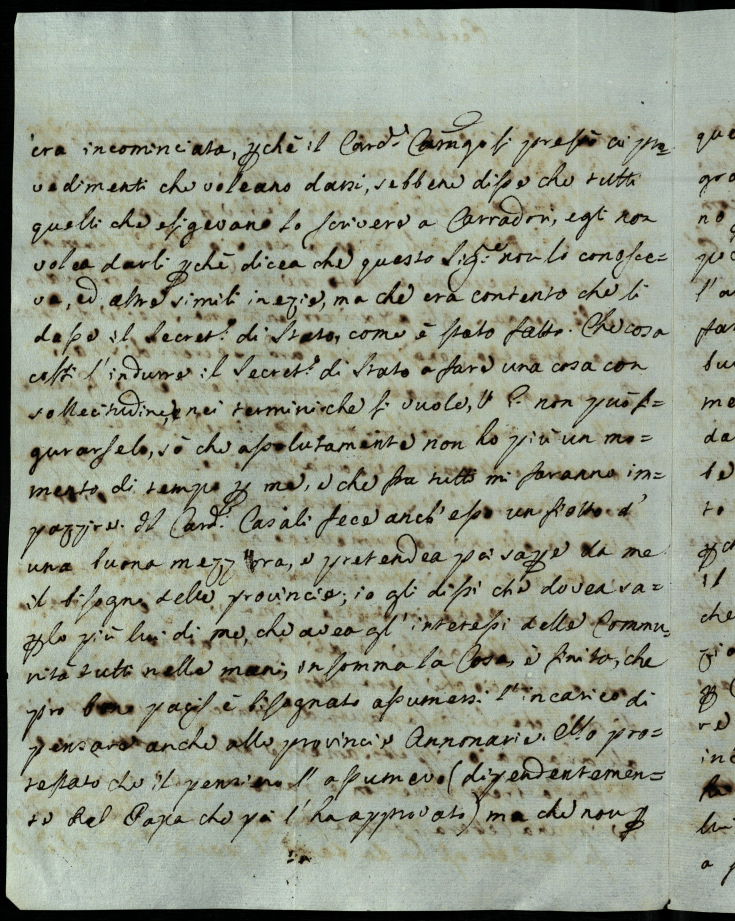 era incominciata, pchè il Card.l si prestò ai pro=
vedimenti che voleano darsi, sebbene disse che tutti
quelli che esigevano lo scrivere a Carradori, egli non
volea darli pchè dicea che questo Sig.re non lo conosce=
va, ed altre simili inezie, ma che era contento che li
dasse il Secret.o di Stato, come è stato fatto. Che cosa
costi l'indurre il Secret.o di Stato a fare una cosa con
sollecitudine, e nei termini che si vuole, V. E. non può fi=
gurarselo, sò che assolutamente non ho più un mo=
mento di tempo p me, e che fra tutti mi faranno im=
pazzire. Il Card.l Casali fece anch'esso un fiotto d'
una buona mezz'ora, e pretendea poi sape da me
il bisogno delle provincie; io gli dissi che dovea sa=
plo più lui di me, che avea gl'interessi delle Commu=
nità tutti nelle mani; in somma la Cosa è finita, che
pro bono pacis è bisognato assumersi l'incarico di
pensare anche alle provincie Annonarie. Ho pro=
testato che il pensiero l'assumevo (dipendentemen=
te dal Papa che poi l'ha approvato) ma che non p